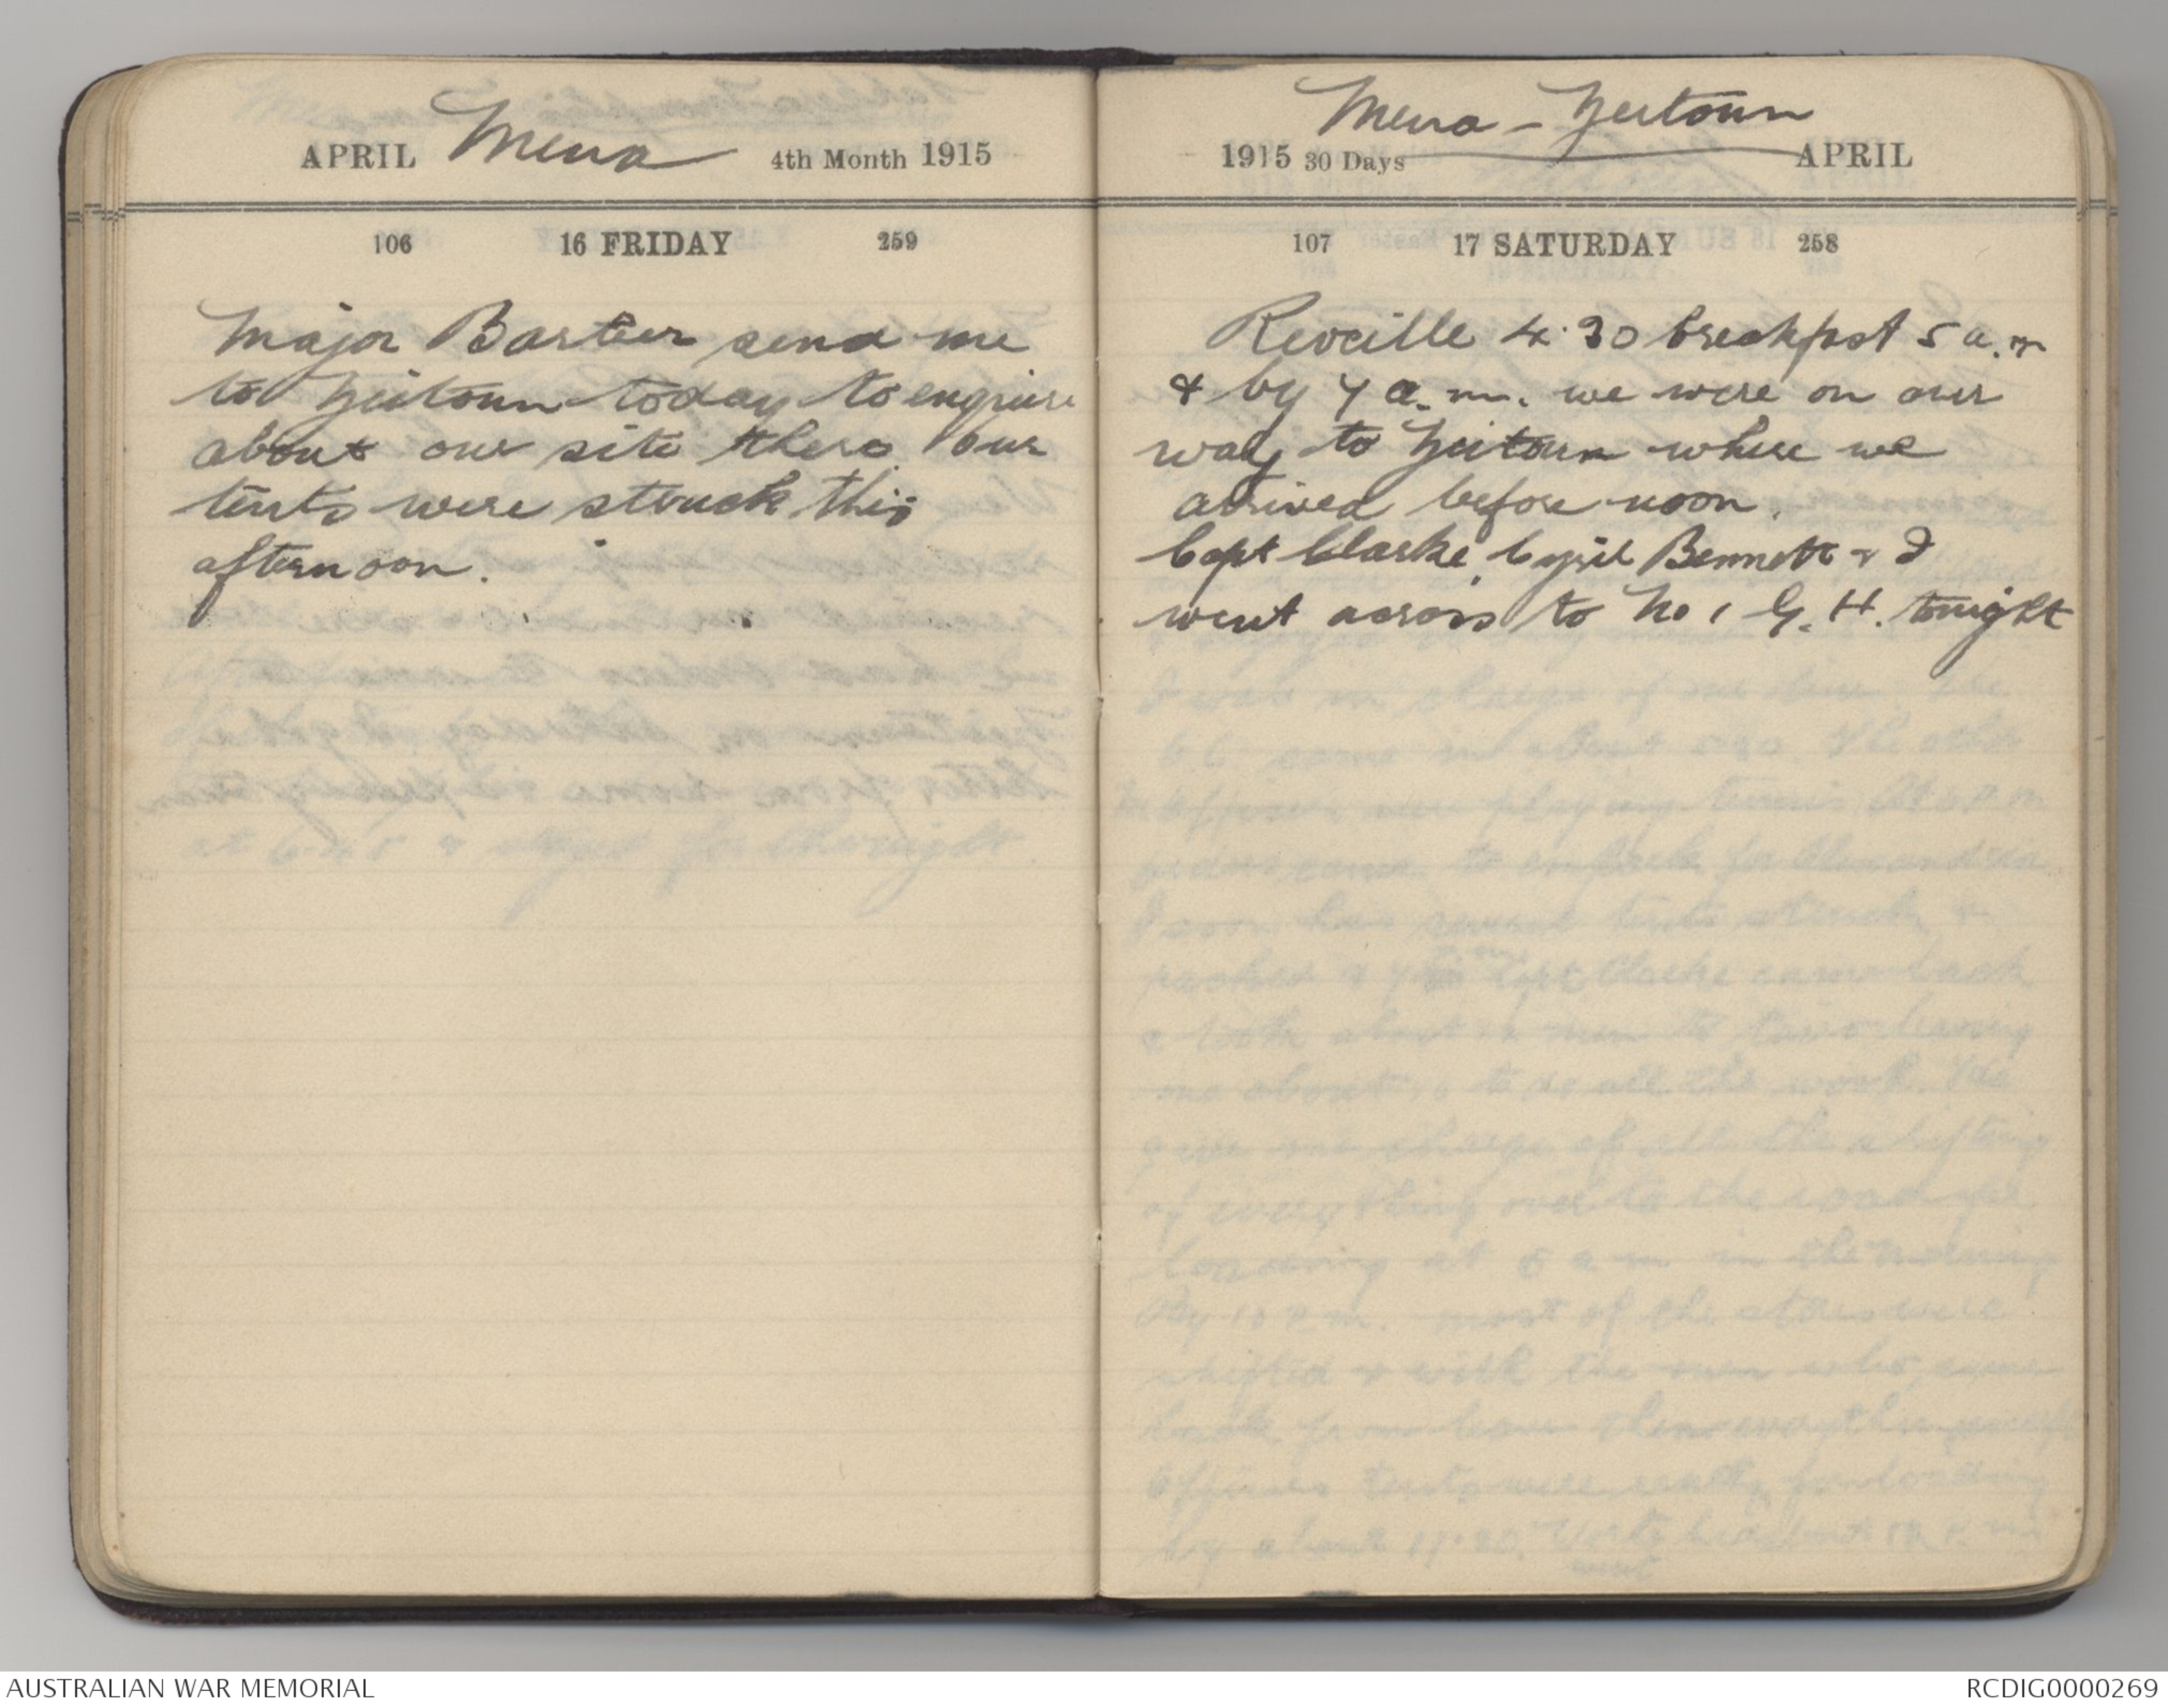 APRIL Mena 4th Month 1915
106 16 FRIDAY 259
Major Barton send me
to Zeitoun today to enquire
about our site there. Our
tents were struck this
afternoon.
Mena - Zeitoun
1915 30 Days APRIL
107 17 SATURDAY 258
Reveille 4.30 breakfast 5 a.m
& by 7 a.m. we were on our
way to Zeitoun where we
arrived before noon.
Capt Clarke, Cyril Bennett & I
went across to No 1 G. H. tonight
AUSTRALIAN WAR MEMORIAL
RCDIG0000269